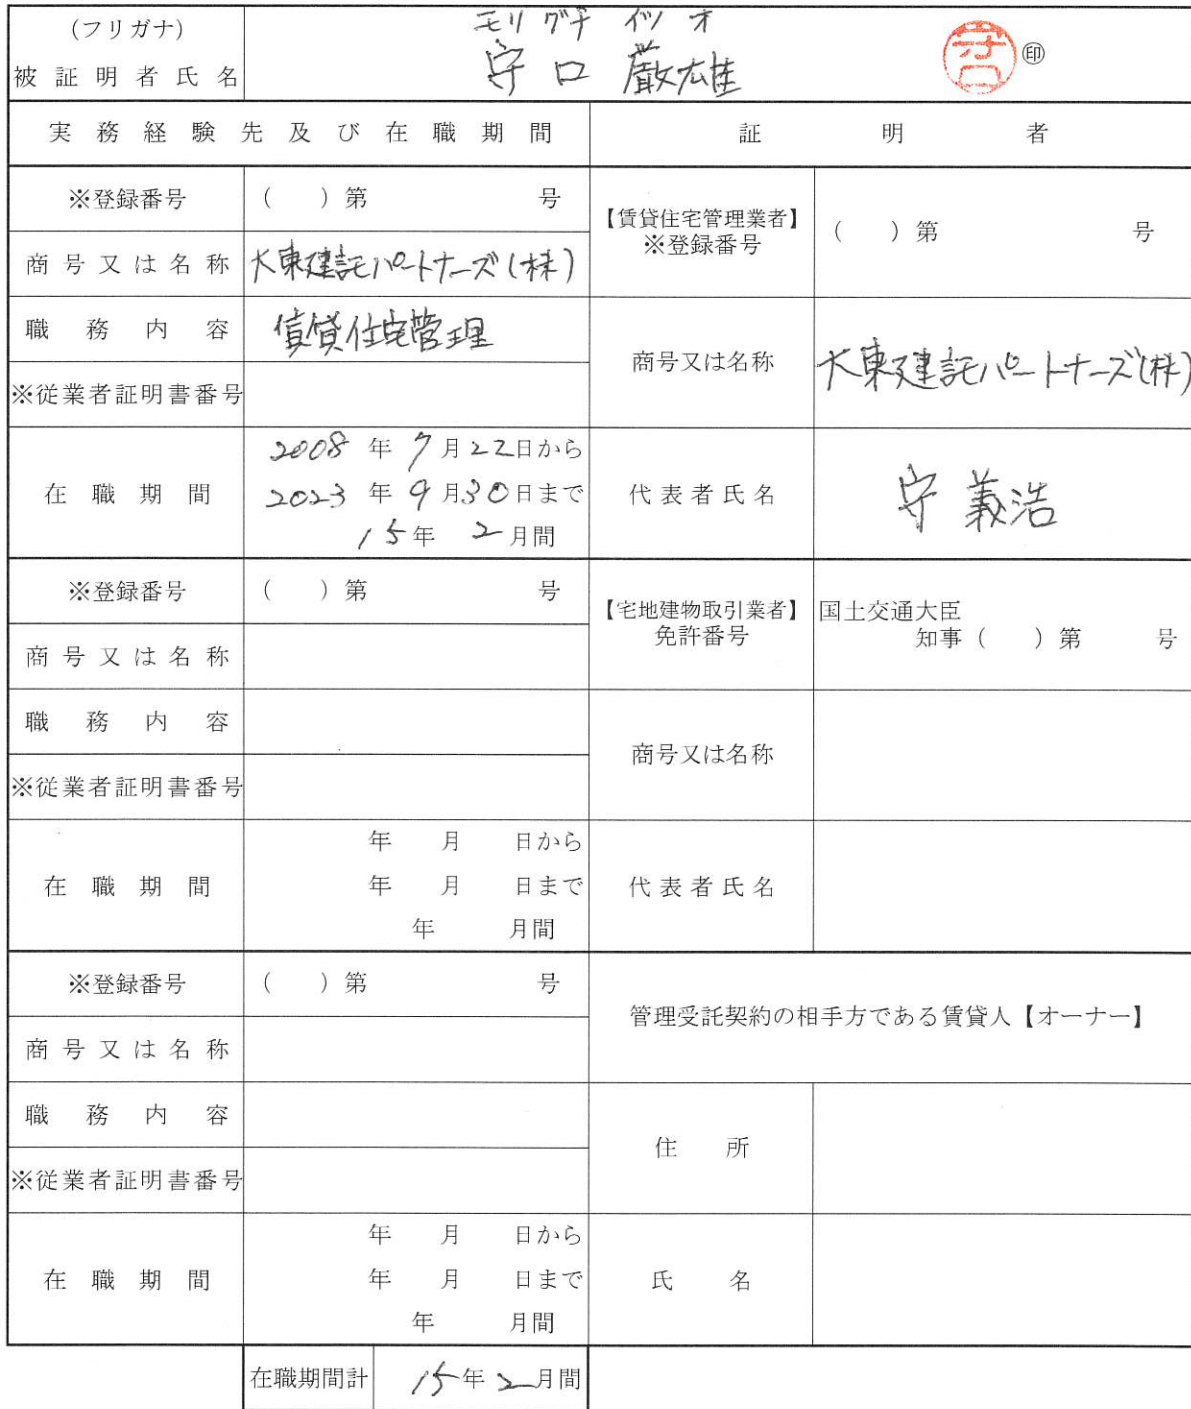 (フリガナ) モリグチ イツオ
被証明者氏名 守口 厳雄 守口 ㊞
実務経験先及び在職期間 証明者
※登録番号 ( ) 第 号
【賃貸住宅管理業者】
※登録番号
( ) 第 号
商号又は名称 大東建託パートナーズ(株)
職務内容 賃貸住宅管理
商号又は名称 大東建託パートナーズ(株)
※従業者証明書番号
在職期間
2008 年 7 月 22 日から
2023 年 9 月 30 日まで
15 年 2 月間
代表者氏名 守 義浩
※登録番号 ( ) 第 号
【宅地建物取引業者】
免許番号
国土交通大臣
知事 ( ) 第 号
商号又は名称
職務内容
商号又は名称
※従業者証明書番号
在職期間
年 月 日から
年 月 日まで
年 月間
代表者氏名
※登録番号 ( ) 第 号
管理受託契約の相手方である賃貸人【オーナー】
商号又は名称
職務内容
住所
※従業者証明書番号
在職期間
年 月 日から
年 月 日まで
年 月間
氏名
在職期間計 15 年 2 月間